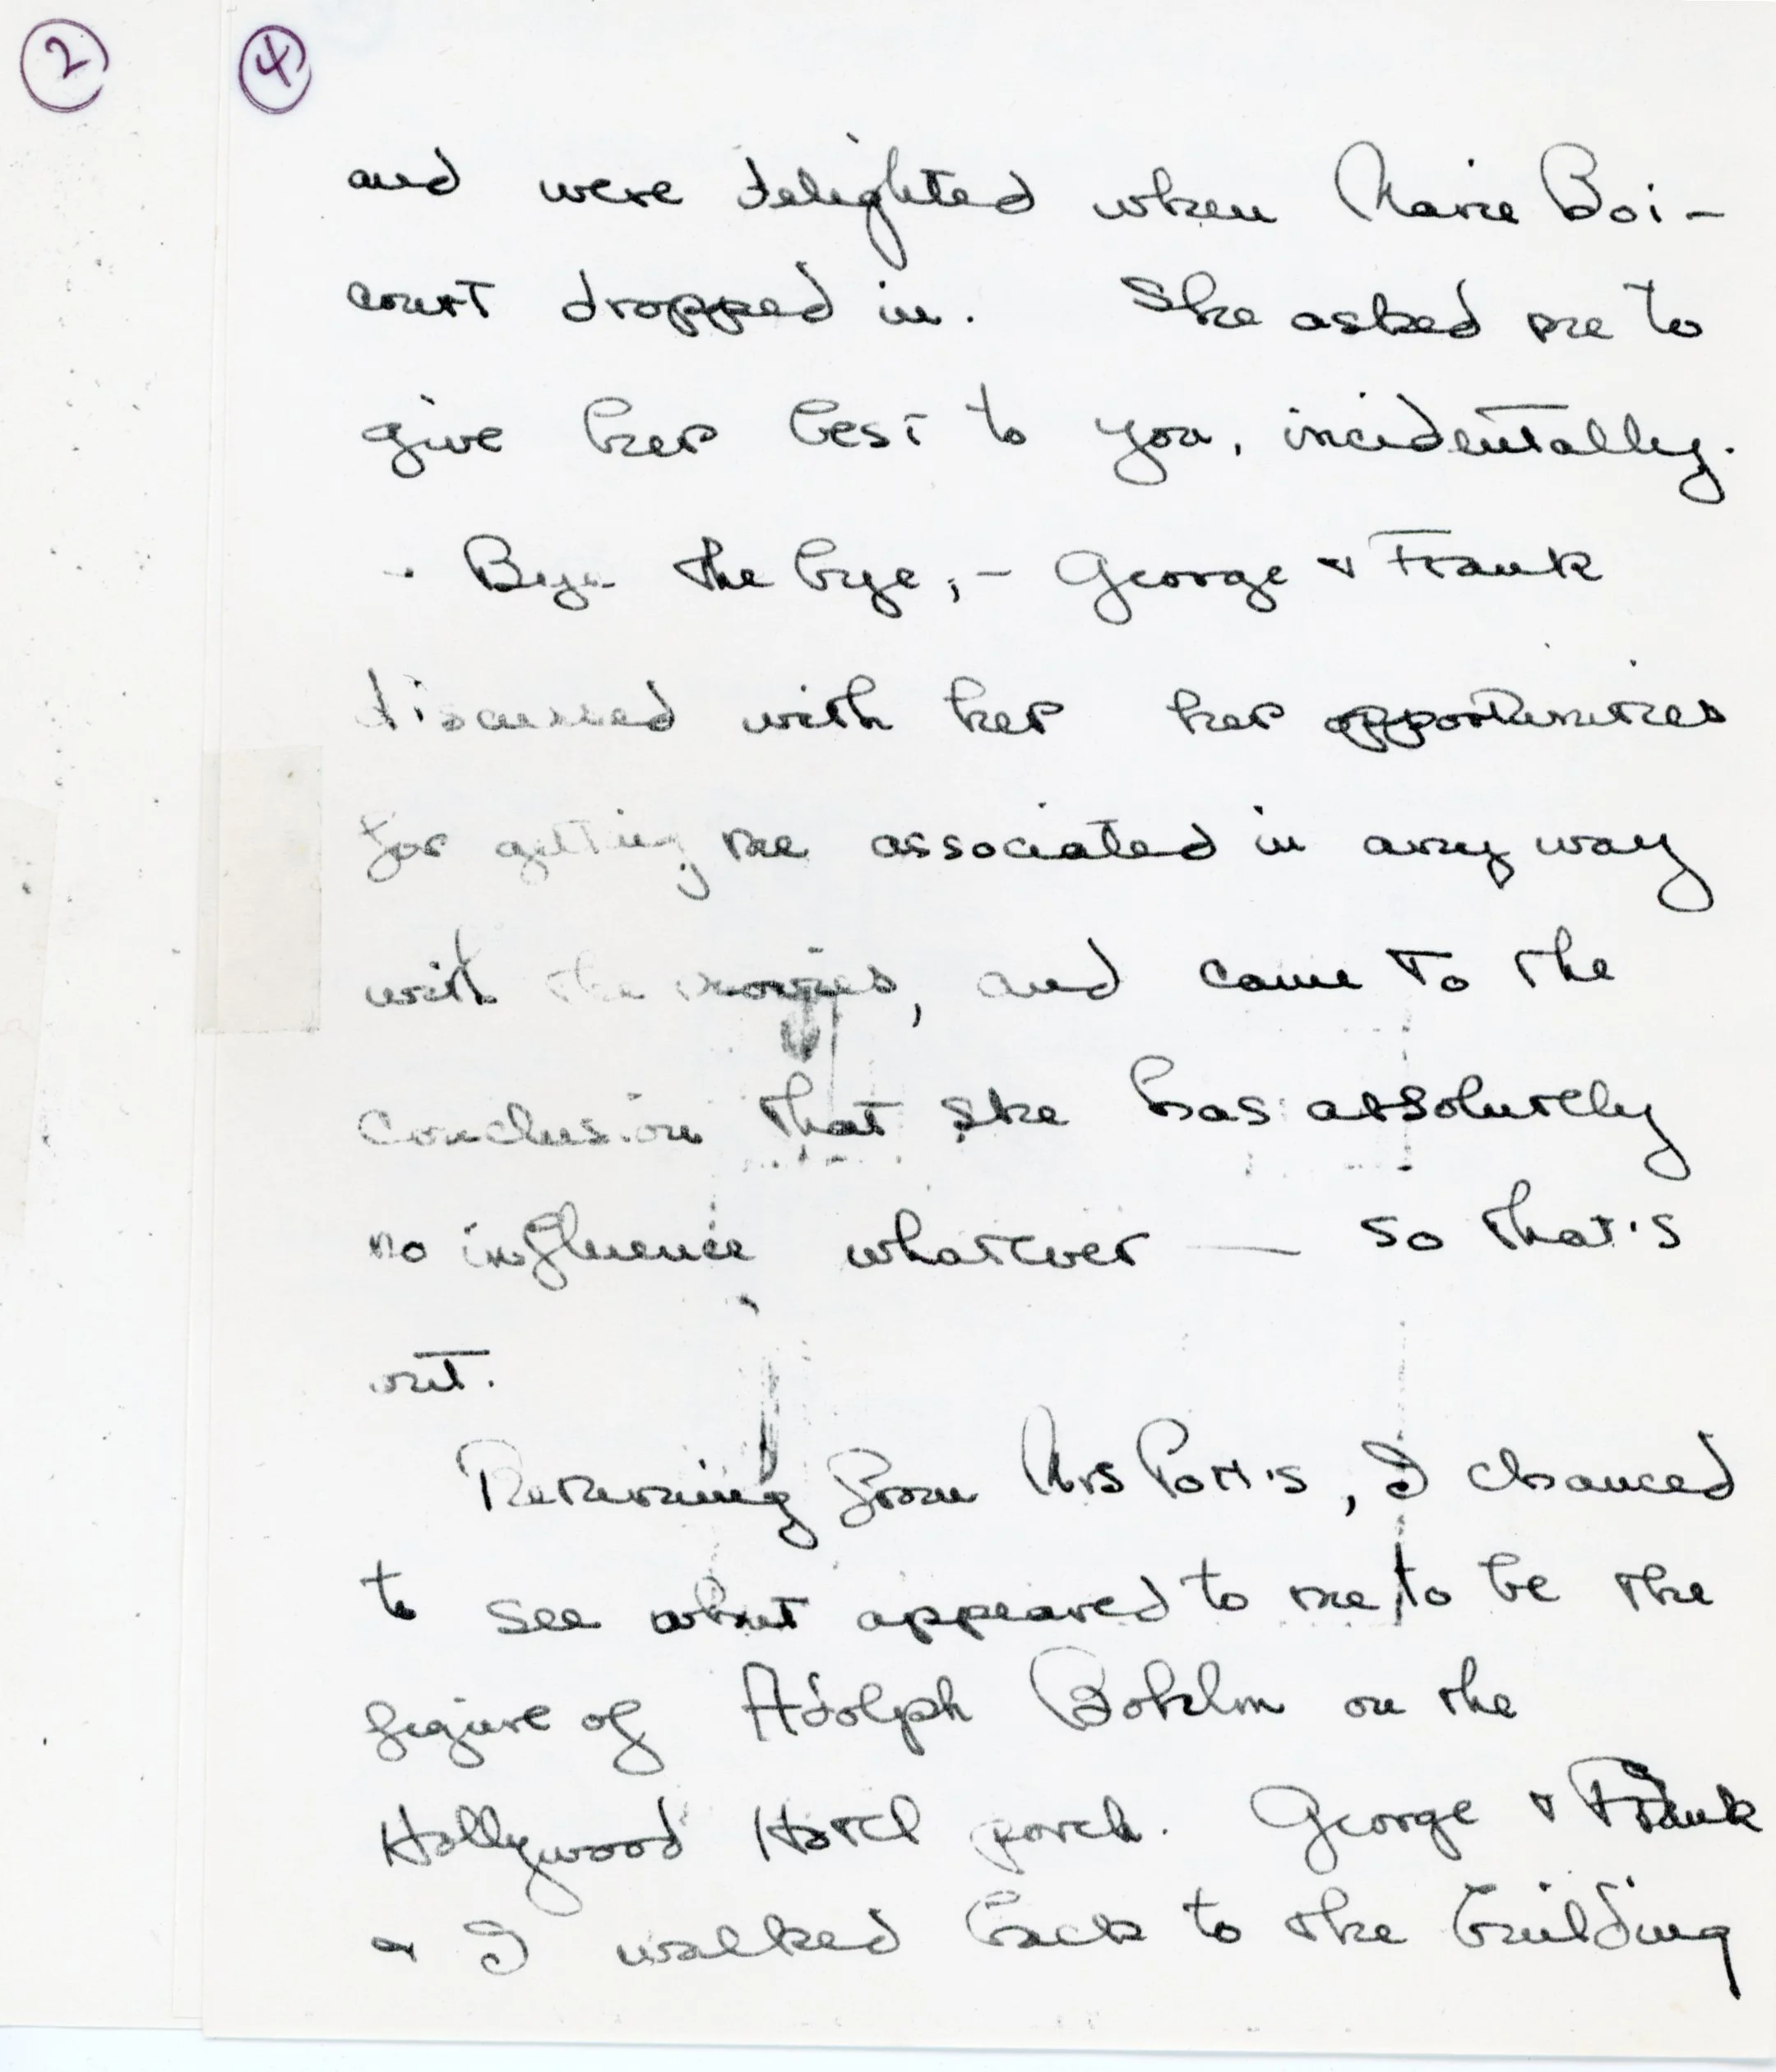 2
4
and were delighted when Marie Boi-
court dropped in. She asked me to
give her best to you, incidentally.
- Bye the bye, - George & Frank
discussed with her her opportunities
for getting me associated in any way
with the movies, and came to the
conclusion that she has absolutely
no influence whatever — so that's
out.
Returning from Mrs Pott's, I chanced
to see what appeared to me, to be the
figure of Adolph Bohlm on the
Hollywood Hotel porch. George & Frank
& I walked back to the building